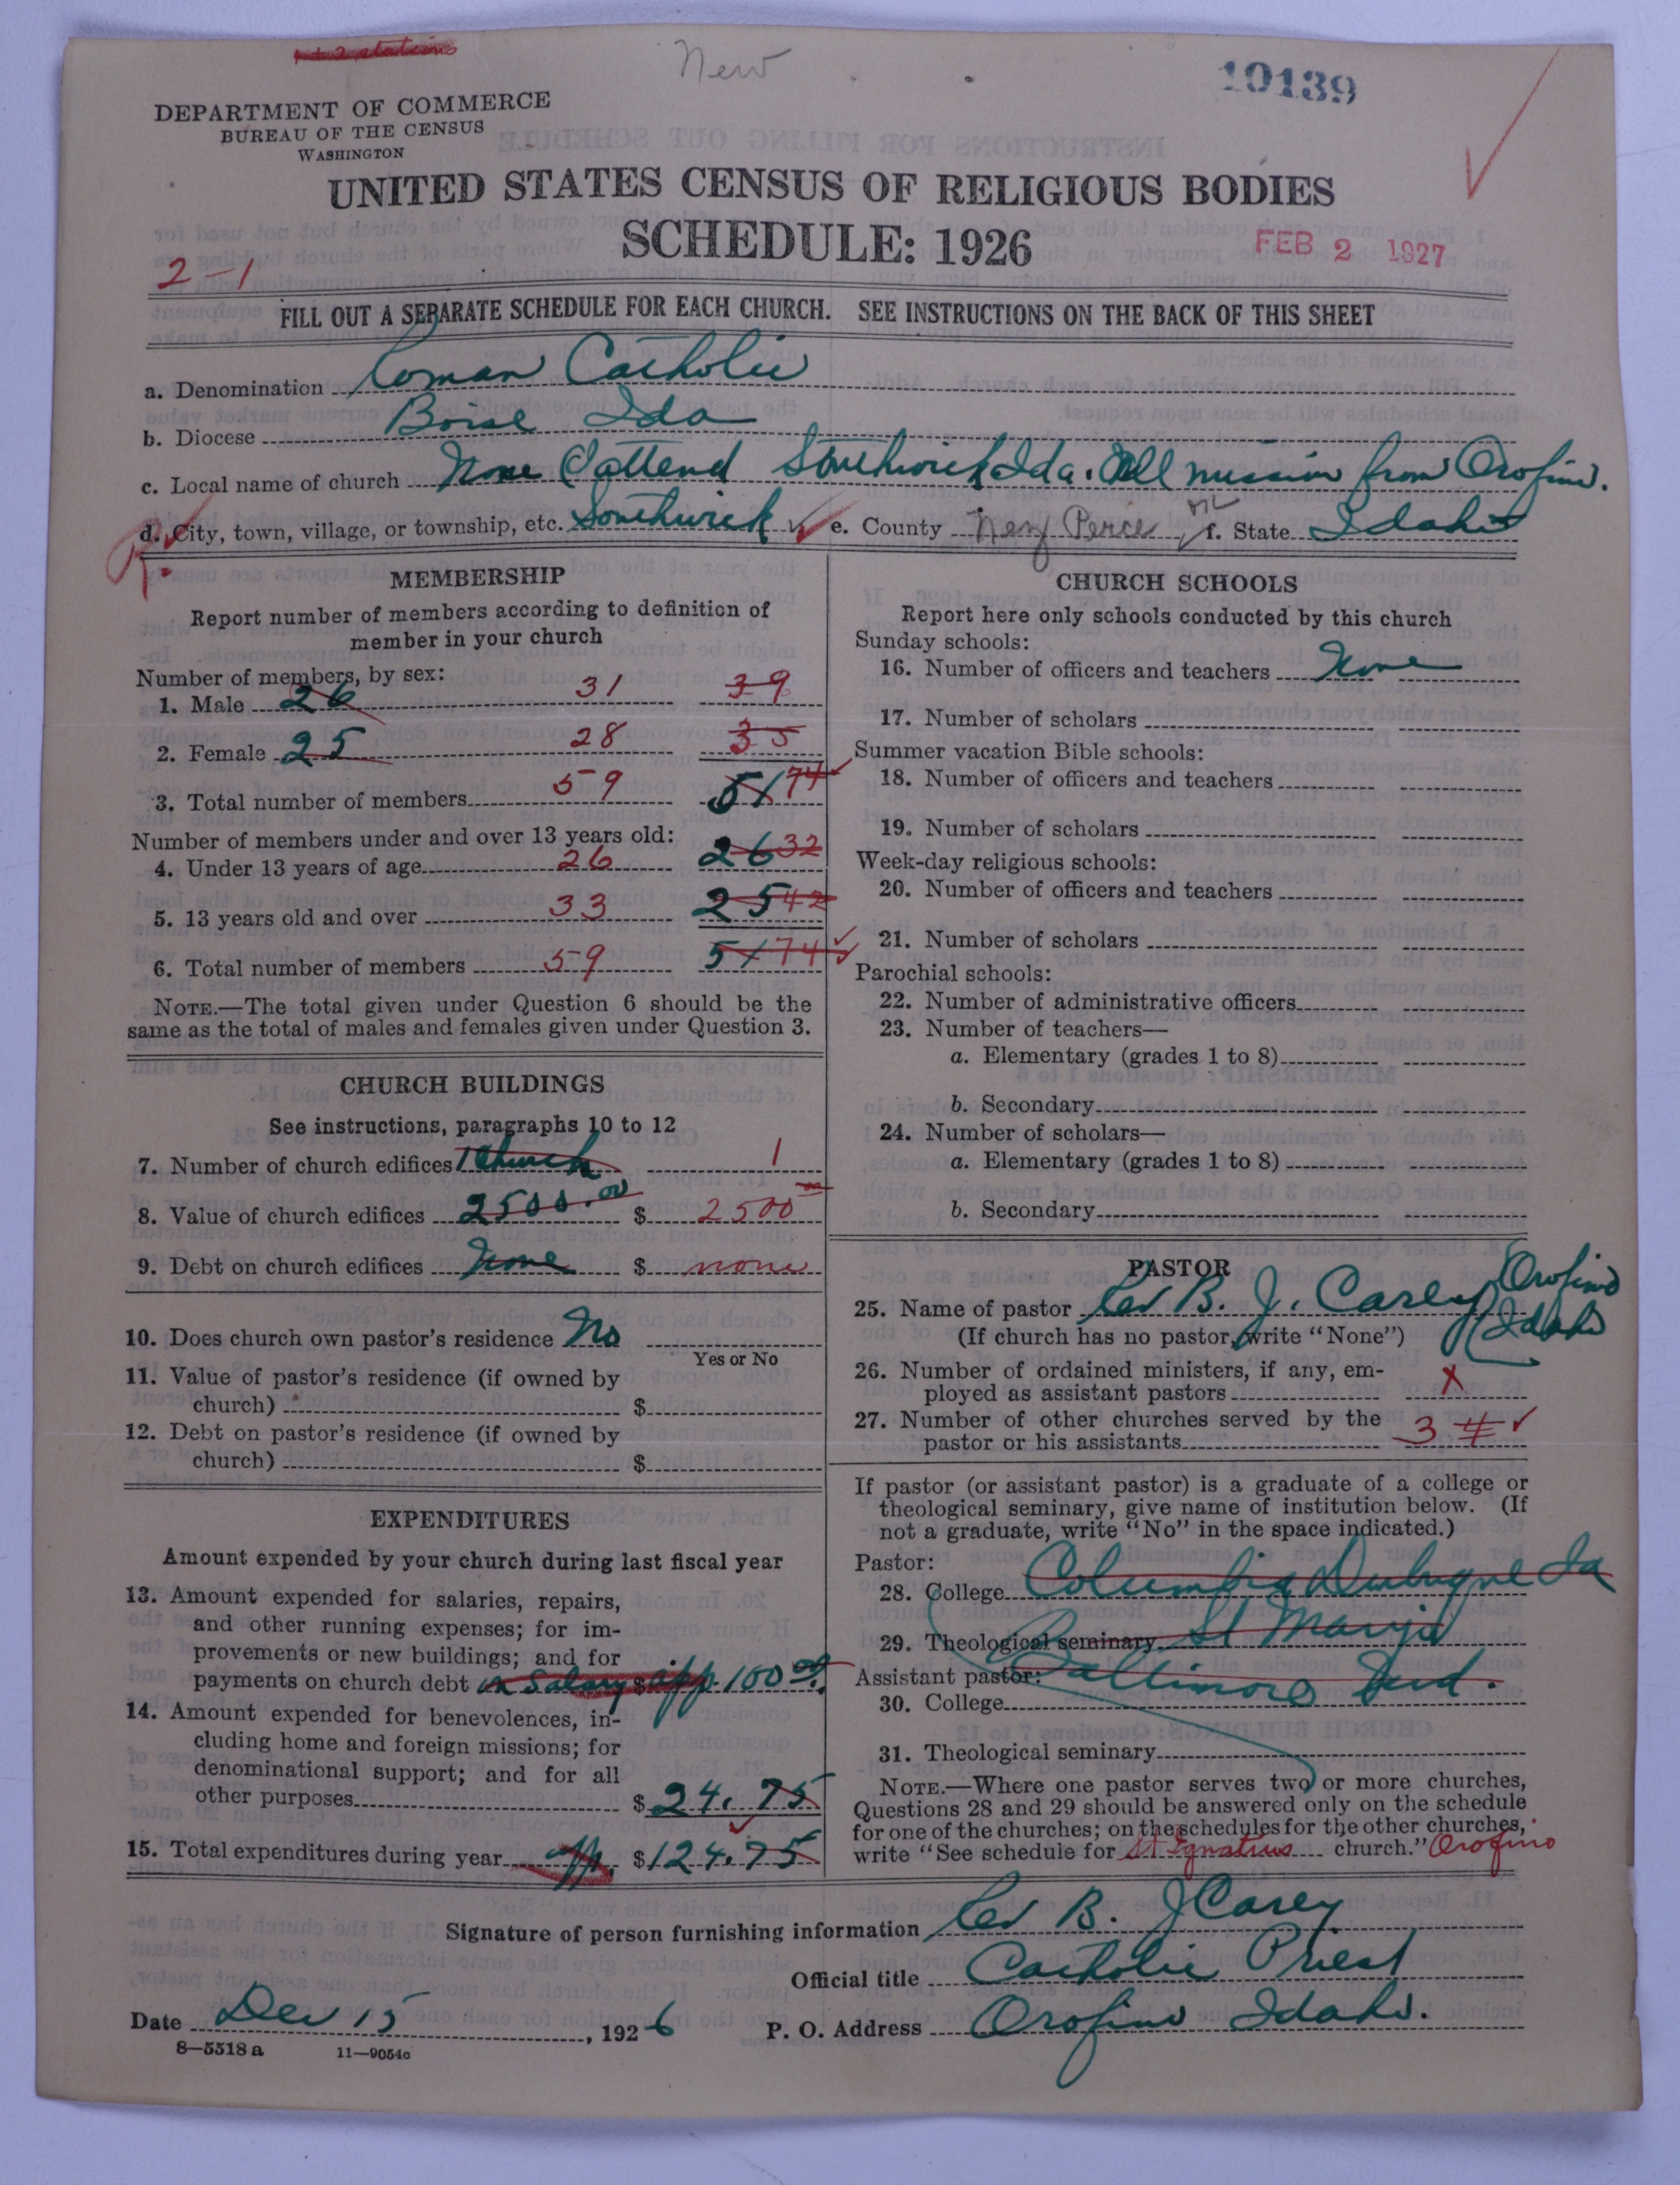 + 2 stations
New
10139
DEPARTMENT OF COMMERCE
BUREAU OF THE CENSUS
WASHINGTON
UNITED STATES CENSUS OF RELIGIOUS BODIES
SCHEDULE: 1926
FEB 2 1927
2-1
FILL OUT A SEPARATE SCHEDULE FOR EACH CHURCH. SEE INSTRUCTIONS ON THE BACK OF THIS SHEET
a. Denomination Roman Catholic
b. Diocese Boise Ida
c. Local name of church None (I attend Southwick Ida. All mission from Orofino.
d. City, town, village, or township, etc. Southwick e. County Nez Perce f. State Idaho
MEMBERSHIP
Report number of members according to definition of
member in your church
Number of members, by sex:
1. Male 26 31 39
2. Female 25 28 35
3. Total number of members 59 51 74
Number of members under and over 13 years old:
4. Under 13 years of age 26 26 32
5. 13 years old and over 33 25 42
6. Total number of members 59 51 74
NOTE.—The total given under Question 6 should be the
same as the total of males and females given under Question 3.
CHURCH BUILDINGS
See instructions, paragraphs 10 to 12
7. Number of church edifices 1 Church 1
8. Value of church edifices 2500.00 $ 2500
9. Debt on church edifices None $ none
10. Does church own pastor's residence No
Yes or No
11. Value of pastor's residence (if owned by
church) $
12. Debt on pastor's residence (if owned by
church) $
EXPENDITURES
Amount expended by your church during last fiscal year
13. Amount expended for salaries, repairs,
and other running expenses; for im-
provements or new buildings; and for
payments on church debt in Salary $ app. 100 00
14. Amount expended for benevolences, in-
cluding home and foreign missions; for
denominational support; and for all
other purposes $ 24.75
15. Total expenditures during year app. $ 124.75
CHURCH SCHOOLS
Report here only schools conducted by this church
Sunday schools:
16. Number of officers and teachers None
17. Number of scholars
Summer vacation Bible schools:
18. Number of officers and teachers
19. Number of scholars
Week-day religious schools:
20. Number of officers and teachers
21. Number of scholars
Parochial schools:
22. Number of administrative officers
23. Number of teachers—
a. Elementary (grades 1 to 8)
b. Secondary
24. Number of scholars—
a. Elementary (grades 1 to 8)
b. Secondary
PASTOR
25. Name of pastor Rev B. J. Carey Orofino
Idaho
(If church has no pastor, write "None")
26. Number of ordained ministers, if any, em-
ployed as assistant pastors x
27. Number of other churches served by the
pastor or his assistants 3 4
If pastor (or assistant pastor) is a graduate of a college or
theological seminary, give name of institution below. (If
not a graduate, write "No" in the space indicated.)
Pastor:
28. College Columbia Dubuque Ia
29. Theological seminary St Marys
Assistant pastor: Baltimore Md.
30. College
31. Theological seminary
NOTE.—Where one pastor serves two or more churches,
Questions 28 and 29 should be answered only on the schedule
for one of the churches; on the schedules for the other churches,
write "See schedule for St Ignatius church." Orofino
Signature of person furnishing information Rev B. J Carey
Official title Catholic Priest
Date Dec 15, 1926 P. O. Address Orofino Idaho.
8—5518a 11—9054c